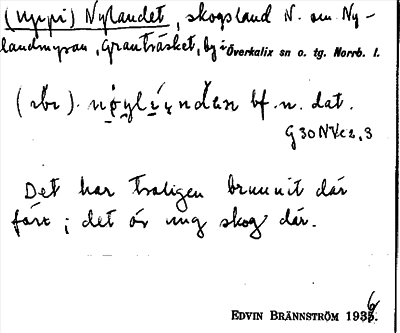 (uppi) Nylandet, skogsland N. om Ny-
landmyran, Granträsket, by i Överkalix sn o. tg. Norrb. l.
bf. n. dat.
G30NVc2,3
Det har troligen brunnit där
förr; det är ung skog där.
EDVIN BRÄNNSTRÖM 1936.